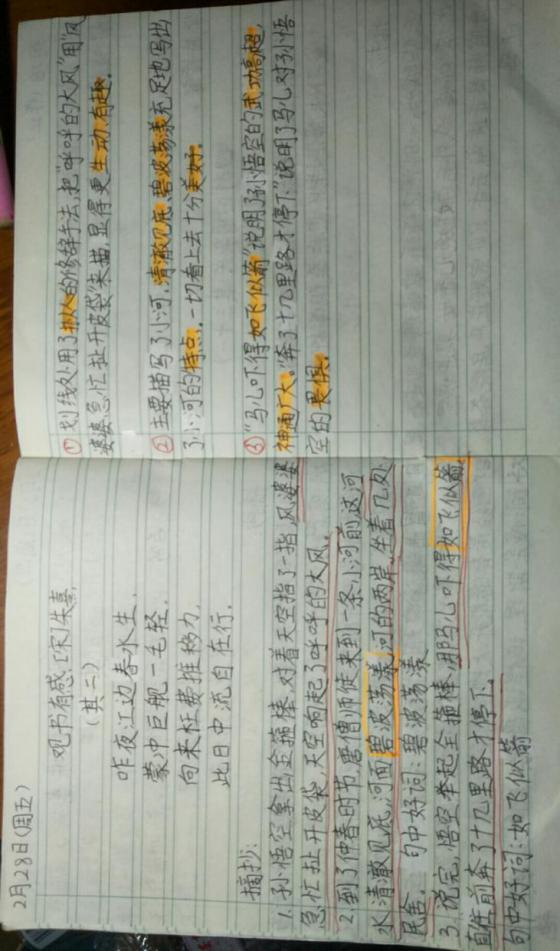 2月28日(周五)
观书有感. [宋]朱熹.
(其二)
昨夜江边春水生.
蒙冲巨舰一毛轻.
向来枉费推移力.
此日中流自在行.
摘抄:
1. 孙悟空拿出金箍棒,对着天空指了一指,风婆婆
急忙扯开皮袋,天空响起了呼呼的大风.
2. 到了仲春时节,唐僧师徒来到一条小河前,这河
水清澈见底,河面碧波荡漾,河的两岸,坐着几处
民舍. 句中好词:碧波荡漾
3. 说完,悟空举起金箍棒,那马儿吓得如飞似箭,
直往前奔了十几里路才停下.
句中好词:如飞似箭
①划线处用了拟人的修辞手法,把“呼呼的大风”用“风
婆婆急忙扯开皮袋”来描,显得更生动、有趣.
②主要描写了小河,清澈见底、碧波荡漾充足地写出
了小河的特点,一切看上去十分美好.
③“马儿吓得如飞似箭”说明了孙悟空的武功高超,
神通广大.“奔了十几里路才停下”说明了马儿对孙悟
空的畏惧.